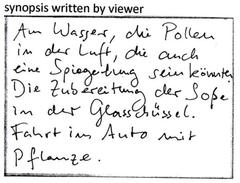 synopsis written by viewer
Am Wasser, die Pollen
in der Luft, die auch
eine Spiegelung sein könnten.
Die Zubereitung der Soße
in der Glasschüssel.
Fahrt im Auto mit
Pflanze.